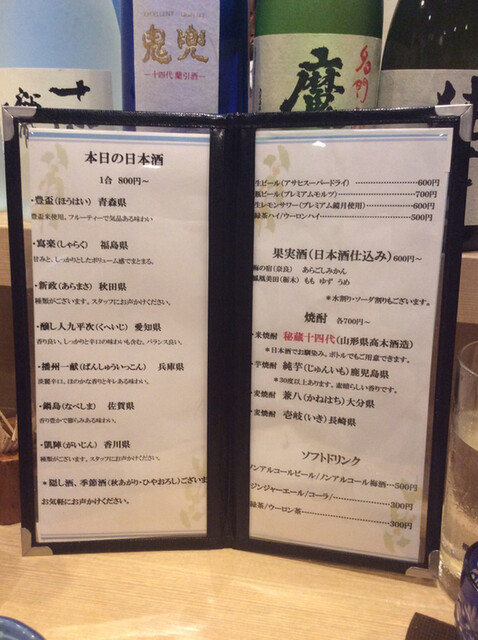 鬼兜
―十四代 蘭引酒―
魔
名門
十四
本日の日本酒
1合 800円～
・豊盃(ほうはい) 青森県
豊盃米使用。フルーティーで気品ある味わい
・寫楽(しゃらく) 福島県
甘みと、しっかりとしたボリューム感でまとまる。
・新政(あらまさ) 秋田県
種類がございます。スタッフにお声かけください。
・醸し人九平次(くへいじ) 愛知県
香り良い、しっかりと辛口の味わいも含む。バランス良い。
・播州一献(ばんしゅういっこん) 兵庫県
淡麗辛口。ほのかな香りとキレある味わい。
・鍋島(なべしま) 佐賀県
香り豊かで膨らみある味わい。
・凱陣(がいじん) 香川県
種類がございます。スタッフにお声かけください。
＊隠し酒、季節酒(秋あがり・ひやおろし)ございま
お気軽にお声かけください。
生ビール(アサヒスーパードライ) ……………600円
瓶ビール(プレミアムモルツ) ……………700円
生レモンサワー(プレミアム鏡月使用)………600円
緑茶ハイ/ウーロンハイ……………500円
果実酒(日本酒仕込み)600円～
梅の宿(奈良) あらごしみかん
鳳凰美田(栃木) もも ゆず うめ
＊水割り・ソーダ割りもございます。
焼酎 各700円～
・米焼酎 秘蔵十四代(山形県高木酒造)
＊日本酒でお馴染み。ボトルでもご用意できます。
・芋焼酎 純芋(じゅんいも)鹿児島県
＊30度以上あります。素晴らしい香りです。
・麦焼酎 兼八(かねはち)大分県
・麦焼酎 壱岐(いき)長崎県
ソフトドリンク
ノンアルコールビール/ノンアルコール梅酒…500円
ジンジャーエール/コーラ/……………300円
緑茶/ウーロン茶……………300円